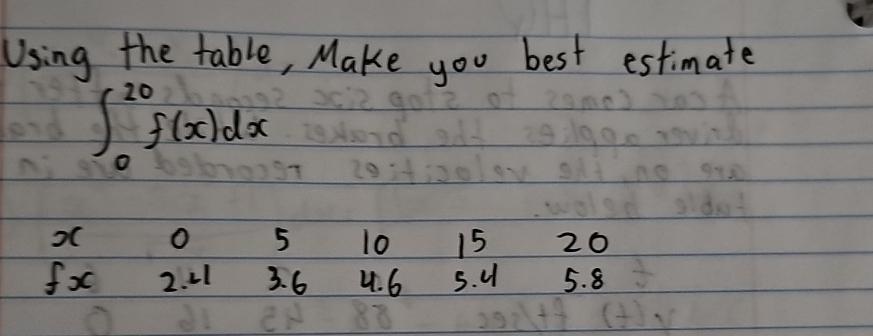 Using the table, Make you best estimate
∫₀²⁰ f(x)dx
x 0 5 10 15 20
fx 2.4 3.6 4.6 5.4 5.8